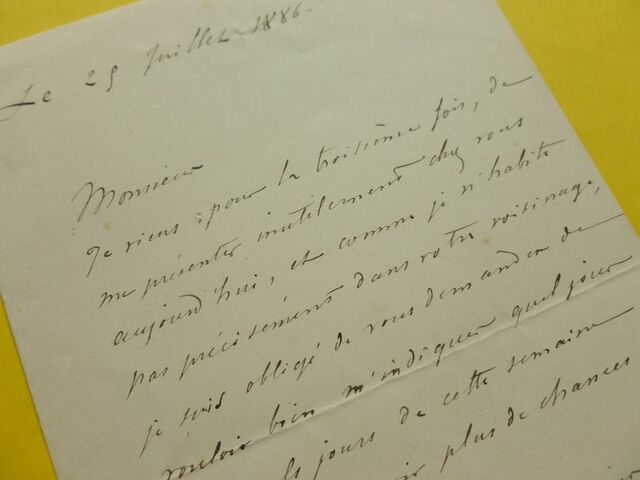 Le 29 Juillet 1886.
Monsieur
Je viens, pour la troisième fois, de
me présenter inutilement chez vous
aujourd'hui, et comme je n'habite
pas précisément dans votre voisinage,
je suis obligé de vous demander de
vouloir bien m'indiquer quel jour
jours de cette semaine
plus de chances